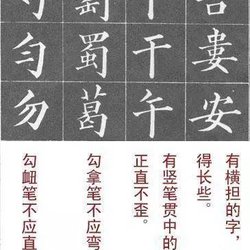 婁安
干午
蜀葛
匀勿
有横担的字，
得长些。
有竖笔贯中的
正直不歪。
勾拿笔不应弯
勾衄笔不应直